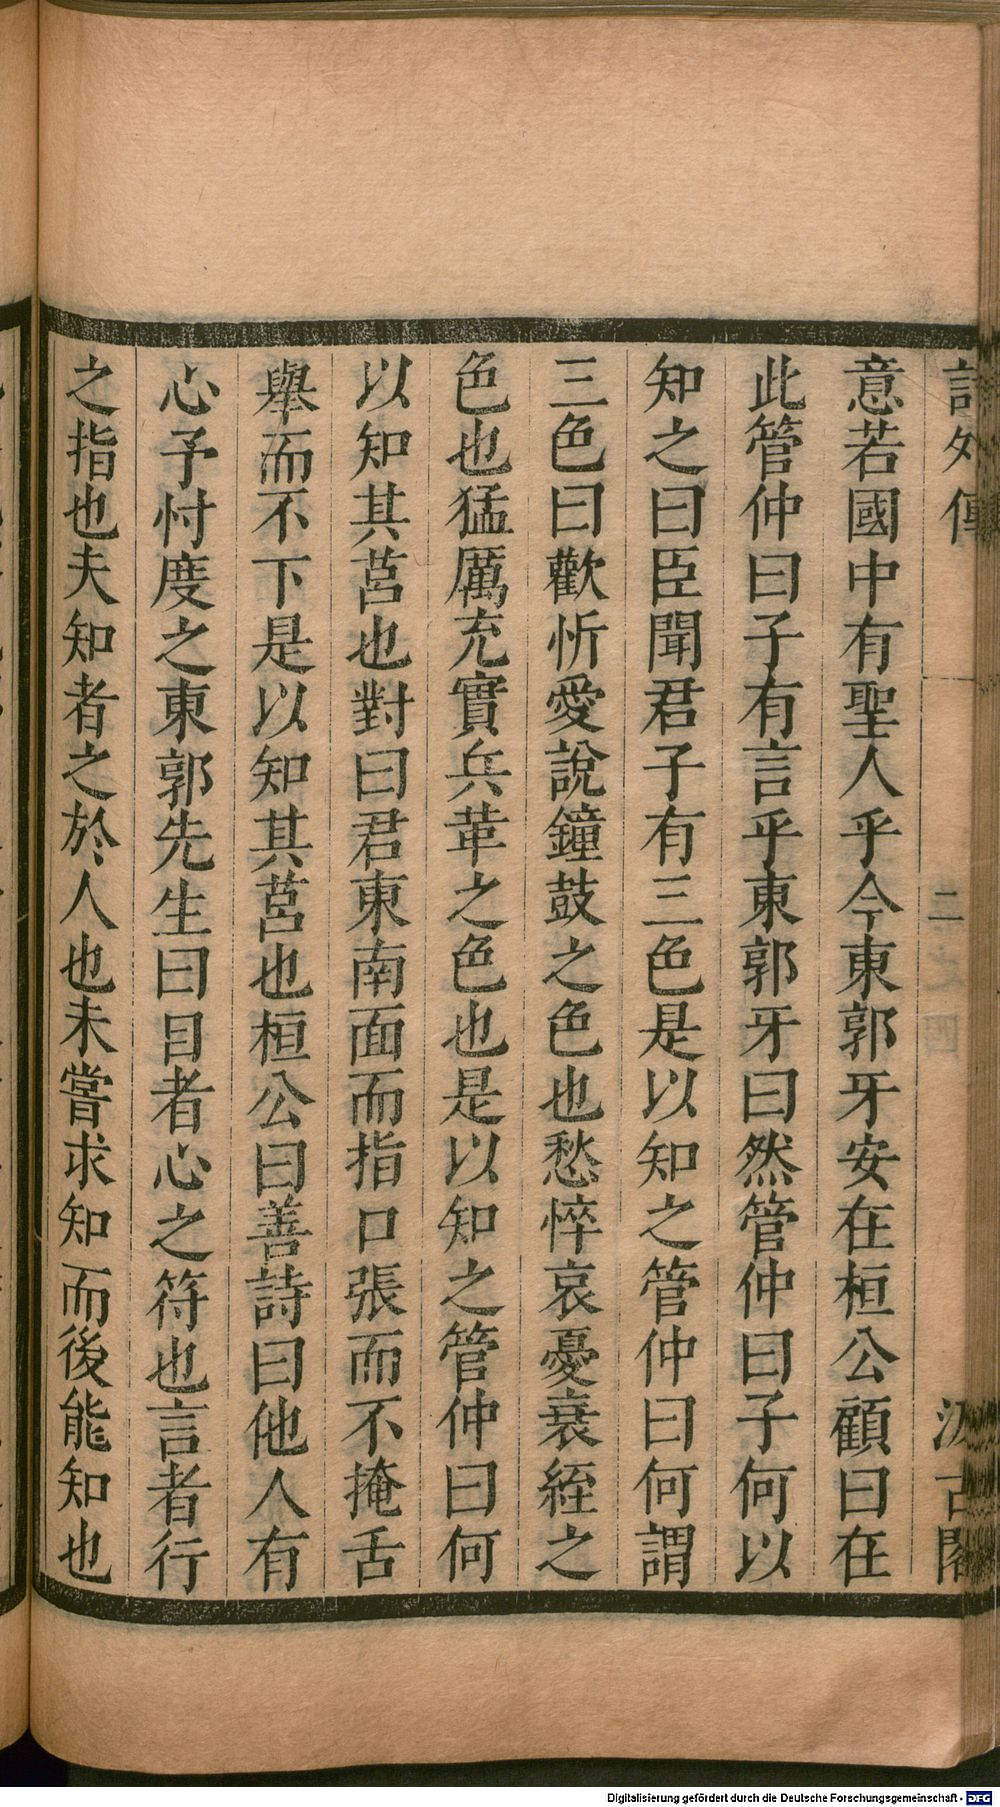 詩外傳 二 汲古閣
意若國中有聖人乎今東郭牙安在桓公顧曰在
此管仲曰子有言乎東郭牙曰然管仲曰子何以
知之曰臣聞君子有三色是以知之管仲曰何謂
三色曰歡忻愛說鐘鼓之色也愁悴哀憂衰絰之
色也猛厲充實兵革之色也是以知之管仲曰何
以知其莒也對曰君東南面而指口張而不掩舌
舉而不下是以知其莒也桓公曰善詩曰他人有
心予忖度之東郭先生曰目者心之符也言者行
之指也夫知者之於人也未嘗求知而後能知也
Digitalisierung gefördert durch die Deutsche Forschungsgemeinschaft - DFG